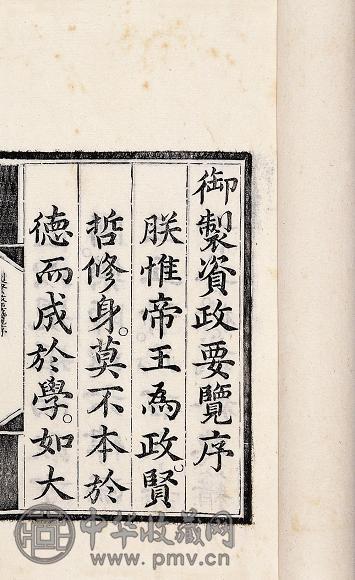 御製資政要覽序
朕惟帝王為政。賢
哲修身。莫不本於
德而成於學。如大
中华收藏网
www.pmv.cn